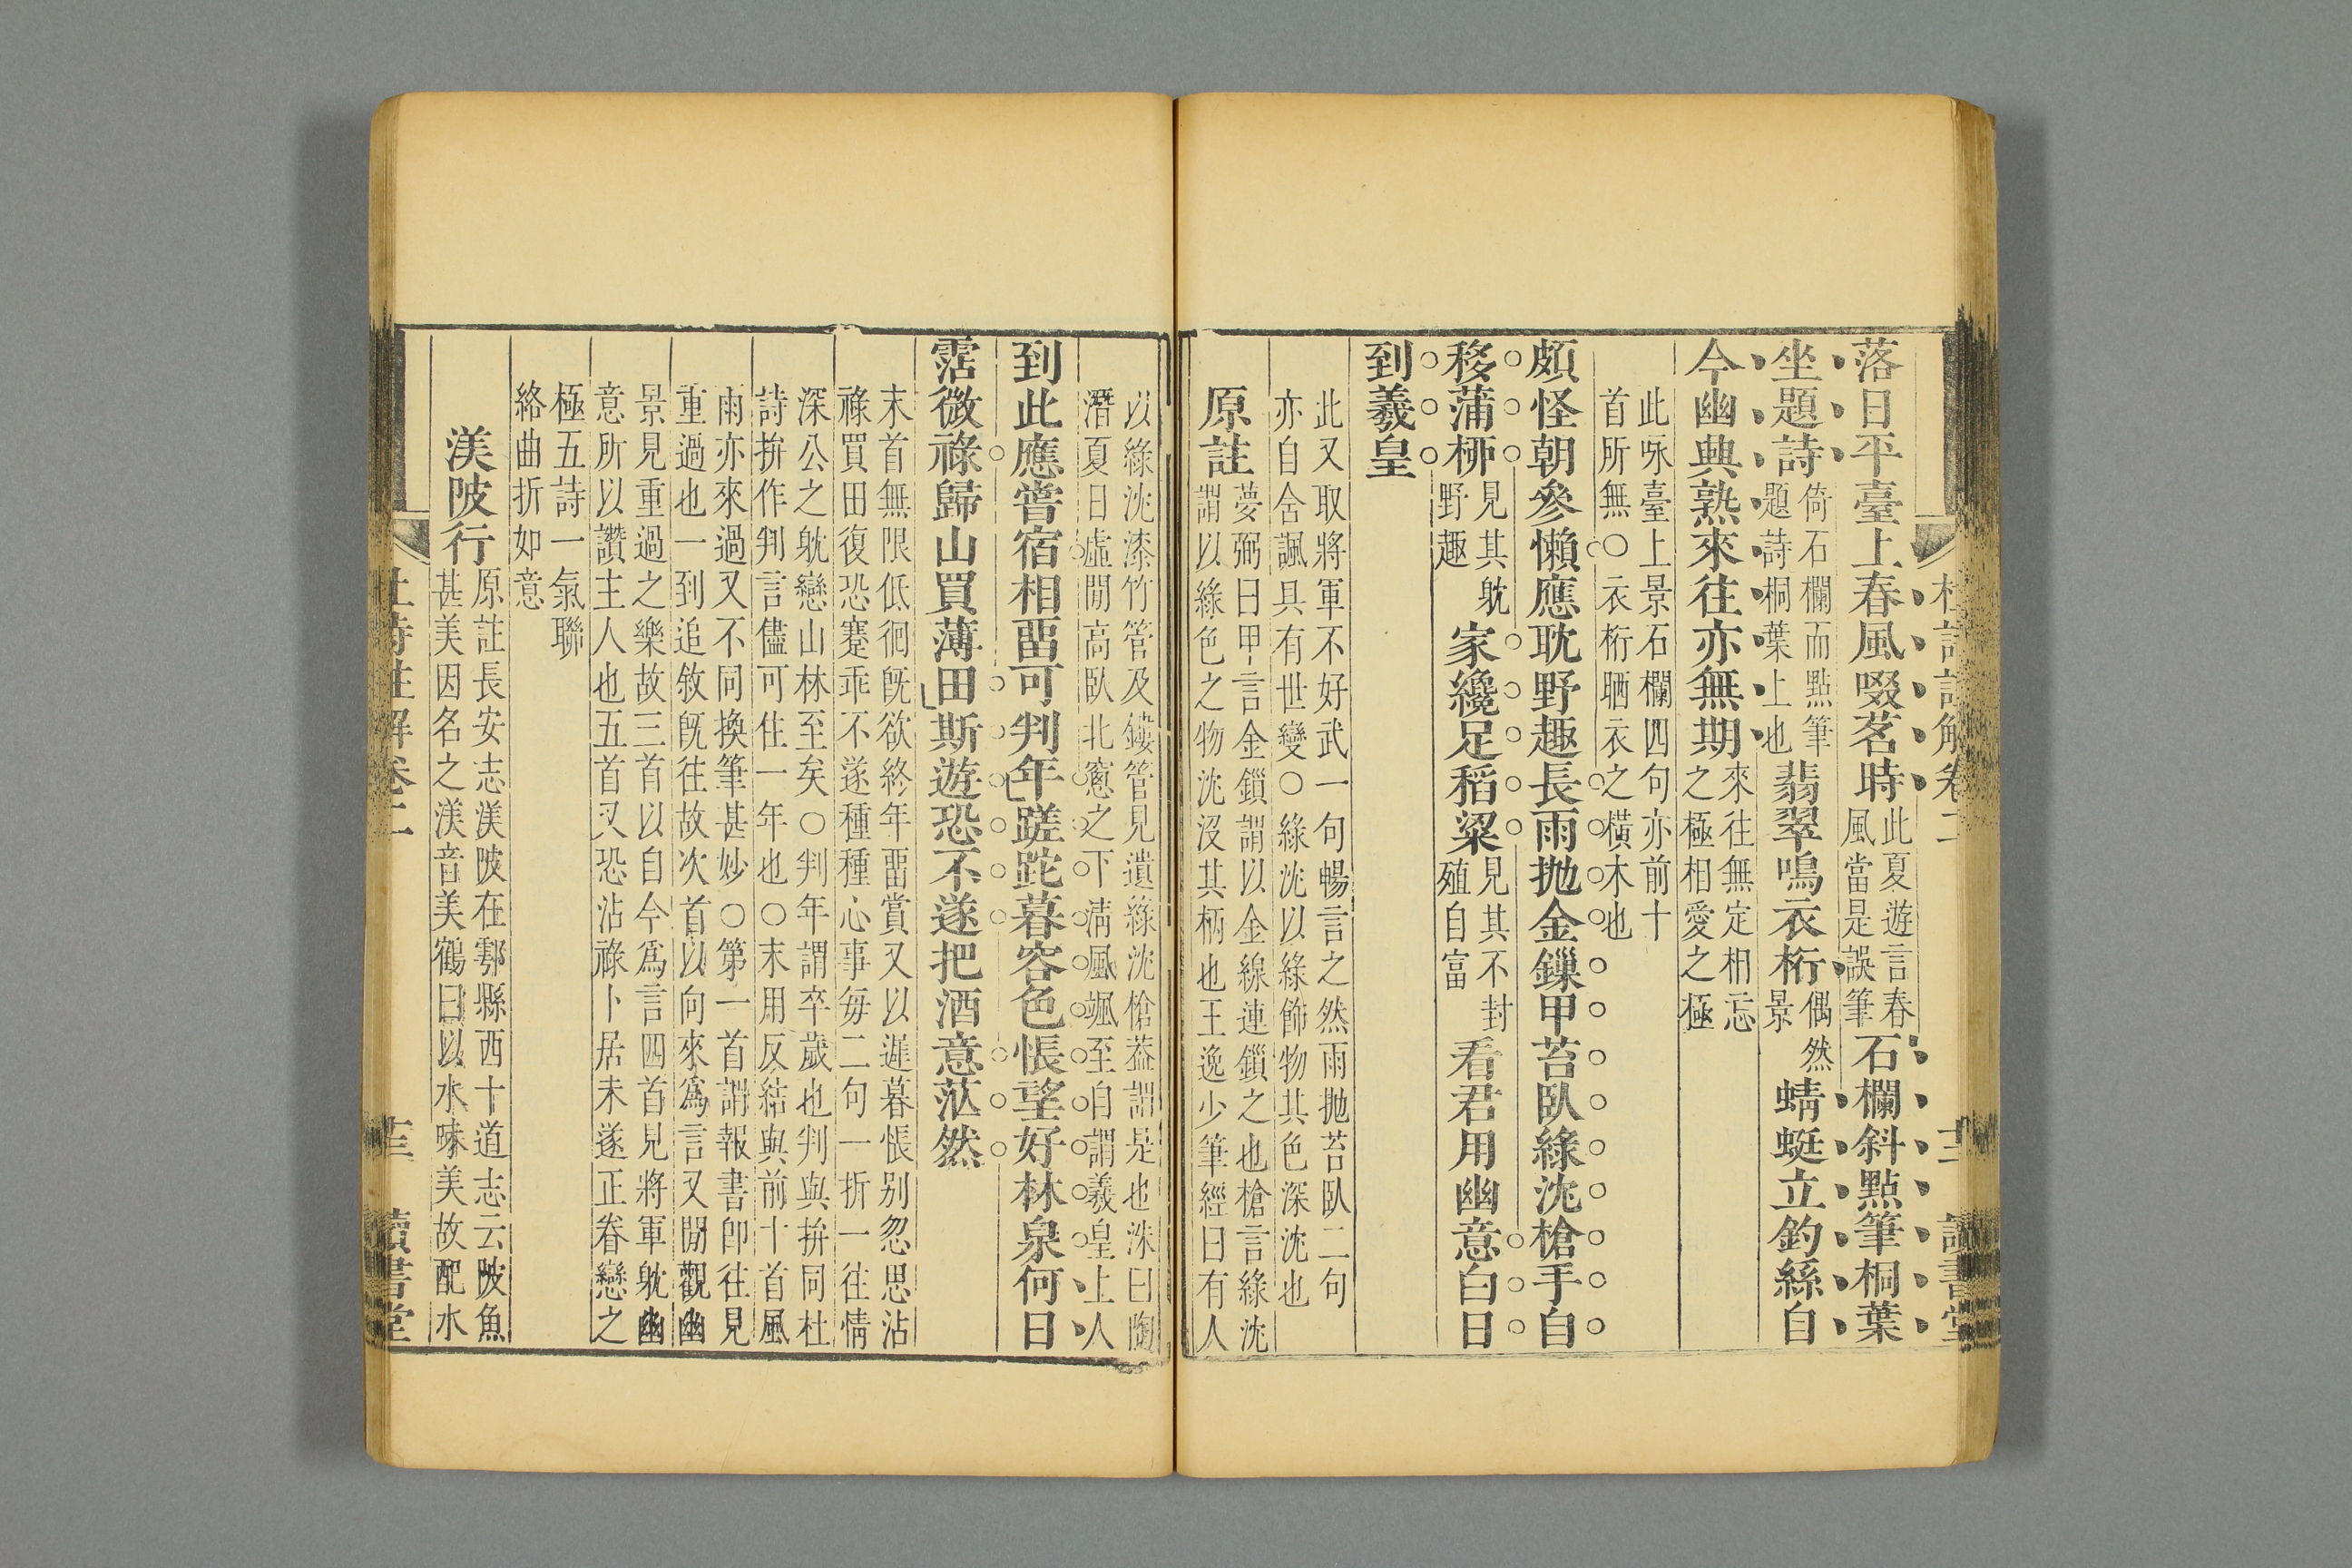 落日平臺上春風啜茗時此夏遊言春風當是誤筆石欄斜點筆桐葉
坐題詩倚石欄而點筆題詩桐葉上也翡翠鳴衣桁偶然景蜻蜓立釣絲自
今幽興熟來往亦無期來往無定相忘之極相愛之極
此咏臺上景石欄四句亦前十
首所無○衣桁晒衣之橫木也
頗怪朝參懶應耽野趣長雨拋金鏁甲苔臥綠沈槍手自
移蒲桺見其躭野趣家纔足稻粱見其不封殖自富看君用幽意白日
到羲皇
此又取將軍不好武一句暢言之然雨拋苔臥二句
亦自含諷具有世變○綠沈以綠飾物其色深沈也
原註夢弼曰甲言金鎖謂以金線連鎖之也槍言綠沈謂以綠色之物沈沒其柄也王逸少筆經曰有人
以綠沈漆竹管及鏤管見遺綠沈槍葢謂是也洙曰陶
潛夏日虛閒高臥北窻之下淸風颯至自謂羲皇上人
到此應嘗宿相畱可判年蹉跎暮容色悵望好林泉何日
霑微祿歸山買薄田斯遊恐不遂把酒意茫然
末首無限低徊旣欲終年畱賞又以遲暮悵別忽思沾
祿買田復恐蹇乖不遂種種心事每二句一折一往情
深公之躭戀山林至矣○判年謂卒歲也判與拚同杜
詩拚作判言儘可住一年也○末用反結與前十首風
雨亦來過又不同換筆甚妙○第一首謂報書卽往見
重過也一到追敘旣往故次首以向來爲言又閒觀幽
景見重過之樂故三首以自今爲言四首見將軍躭幽
意所以讚主人也五首又恐沾祿卜居未遂正眷戀之
極五詩一氣聯
絡曲折如意
渼陂行原註長安志渼陂在鄠縣西十道志云陂魚甚美因名之渼音美鶴曰以水味美故配水
杜詩註解卷二
讀書堂